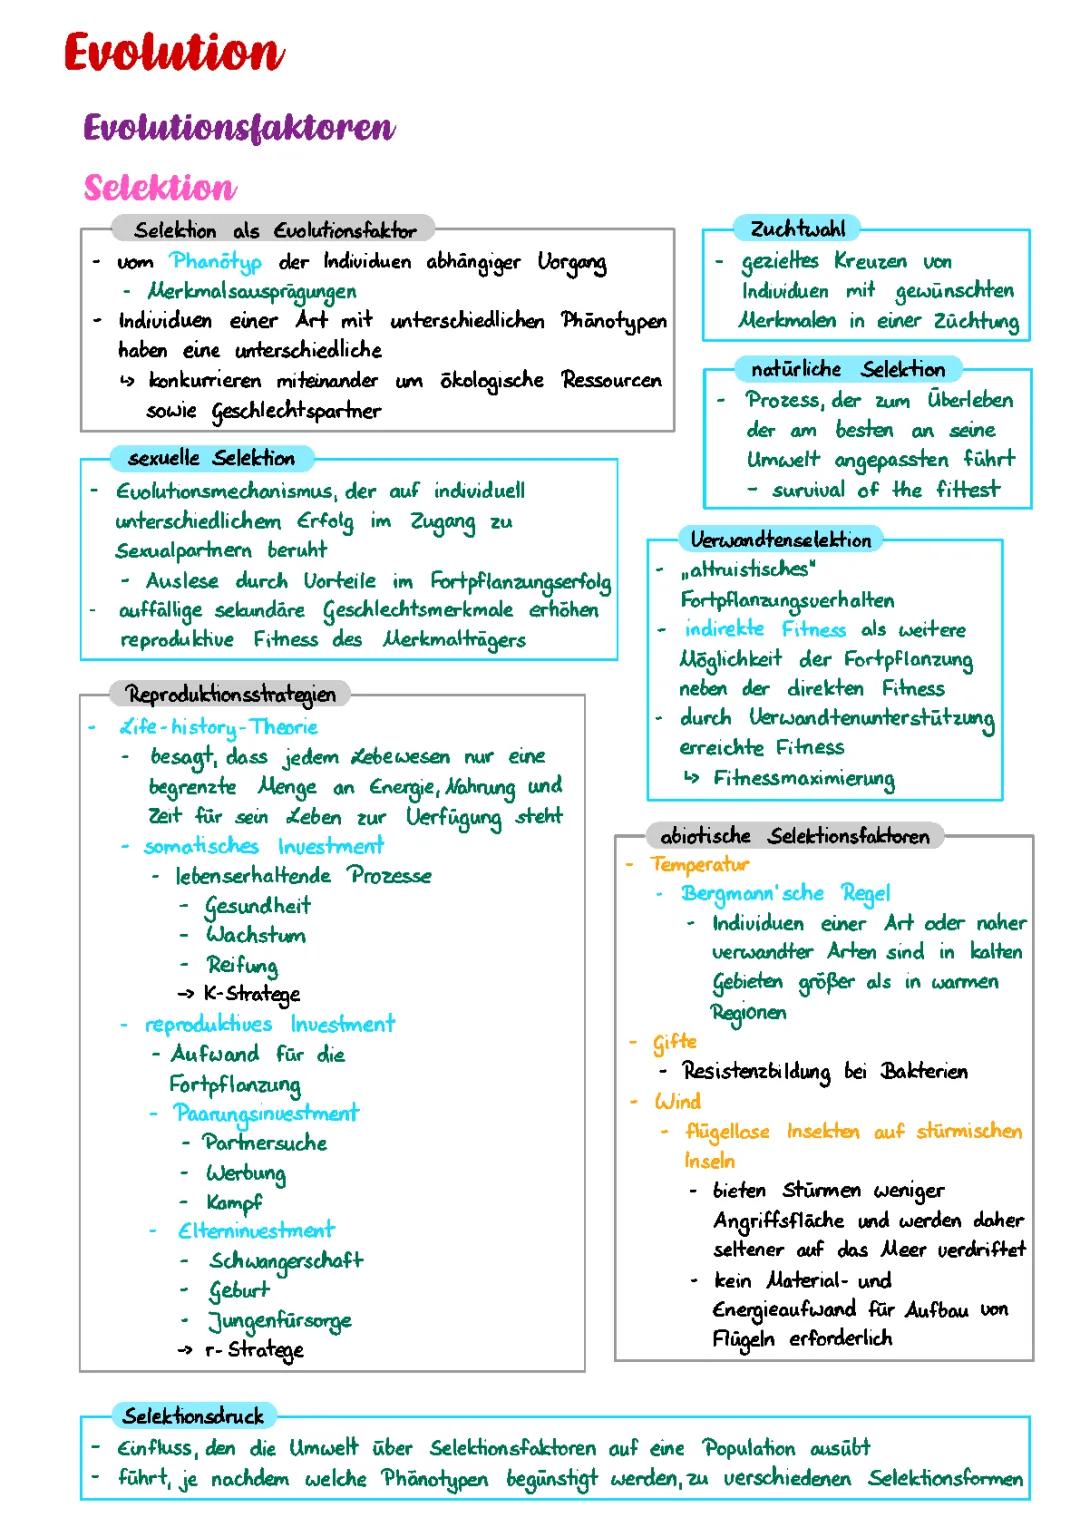 Evolution
Evolutionsfaktoren
Selektion
Selektion als Evolutionsfaktor
- vom Phänotyp der Individuen abhängiger Vorgang
- Merkmalsausprägungen
- Individuen einer Art mit unterschiedlichen Phänotypen
haben eine unterschiedliche
↳ konkurrieren miteinander um ökologische Ressourcen
sowie Geschlechtspartner
Zuchtwahl
- gezieltes Kreuzen von
Individuen mit gewünschten
Merkmalen in einer Züchtung
natürliche Selektion
- Prozess, der zum Überleben
der am besten an seine
Umwelt angepassten führt
- survival of the fittest
sexuelle Selektion
- Evolutionsmechanismus, der auf individuell
unterschiedlichem Erfolg im Zugang zu
Sexualpartnern beruht
- Auslese durch Vorteile im Fortpflanzungserfolg
- auffällige sekundäre Geschlechtsmerkmale erhöhen
reproduktive Fitness des Merkmalträgers
Verwandtenselektion
- „altruistisches"
Fortpflanzungsverhalten
- indirekte Fitness als weitere
Möglichkeit der Fortpflanzung
neben der direkten Fitness
- durch Verwandtenunterstützung
erreichte Fitness
↳ Fitnessmaximierung
Reproduktionsstrategien
- Life-history-Theorie
- besagt, dass jedem Lebewesen nur eine
begrenzte Menge an Energie, Nahrung und
Zeit für sein Leben zur Verfügung steht
- somatisches Investment
- lebenserhaltende Prozesse
- Gesundheit
- Wachstum
- Reifung
→ K-Stratege
- reproduktives Investment
- Aufwand für die
Fortpflanzung
- Paarungsinvestment
- Partnersuche
- Werbung
- Kampf
- Elterninvestment
- Schwangerschaft
- Geburt
- Jungenfürsorge
→ r-Stratege
abiotische Selektionsfaktoren
- Temperatur
- Bergmann'sche Regel
- Individuen einer Art oder naher
verwandter Arten sind in kalten
Gebieten größer als in warmen
Regionen
- Gifte
- Resistenzbildung bei Bakterien
- Wind
- flügellose Insekten auf stürmischen
Inseln
- bieten Stürmen weniger
Angriffsfläche und werden daher
seltener auf das Meer verdriftet
- kein Material- und
Energieaufwand für Aufbau von
Flügeln erforderlich
Selektionsdruck
- Einfluss, den die Umwelt über Selektionsfaktoren auf eine Population ausübt
- führt, je nachdem welche Phänotypen begünstigt werden, zu verschiedenen Selektionsformen